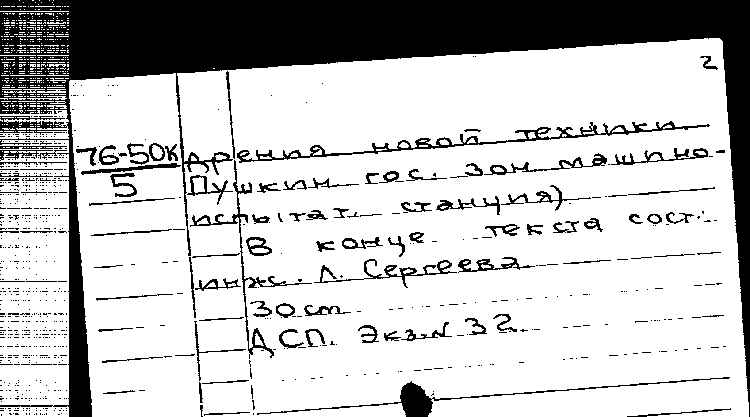 2
76-50К
5
дрения новой техники.
Пушкин. гос. зон. машино-
испытат. станция)
В конце текста сост.:
инж. Л. Сергеева
30 cm
ДСП. Экз. N 32